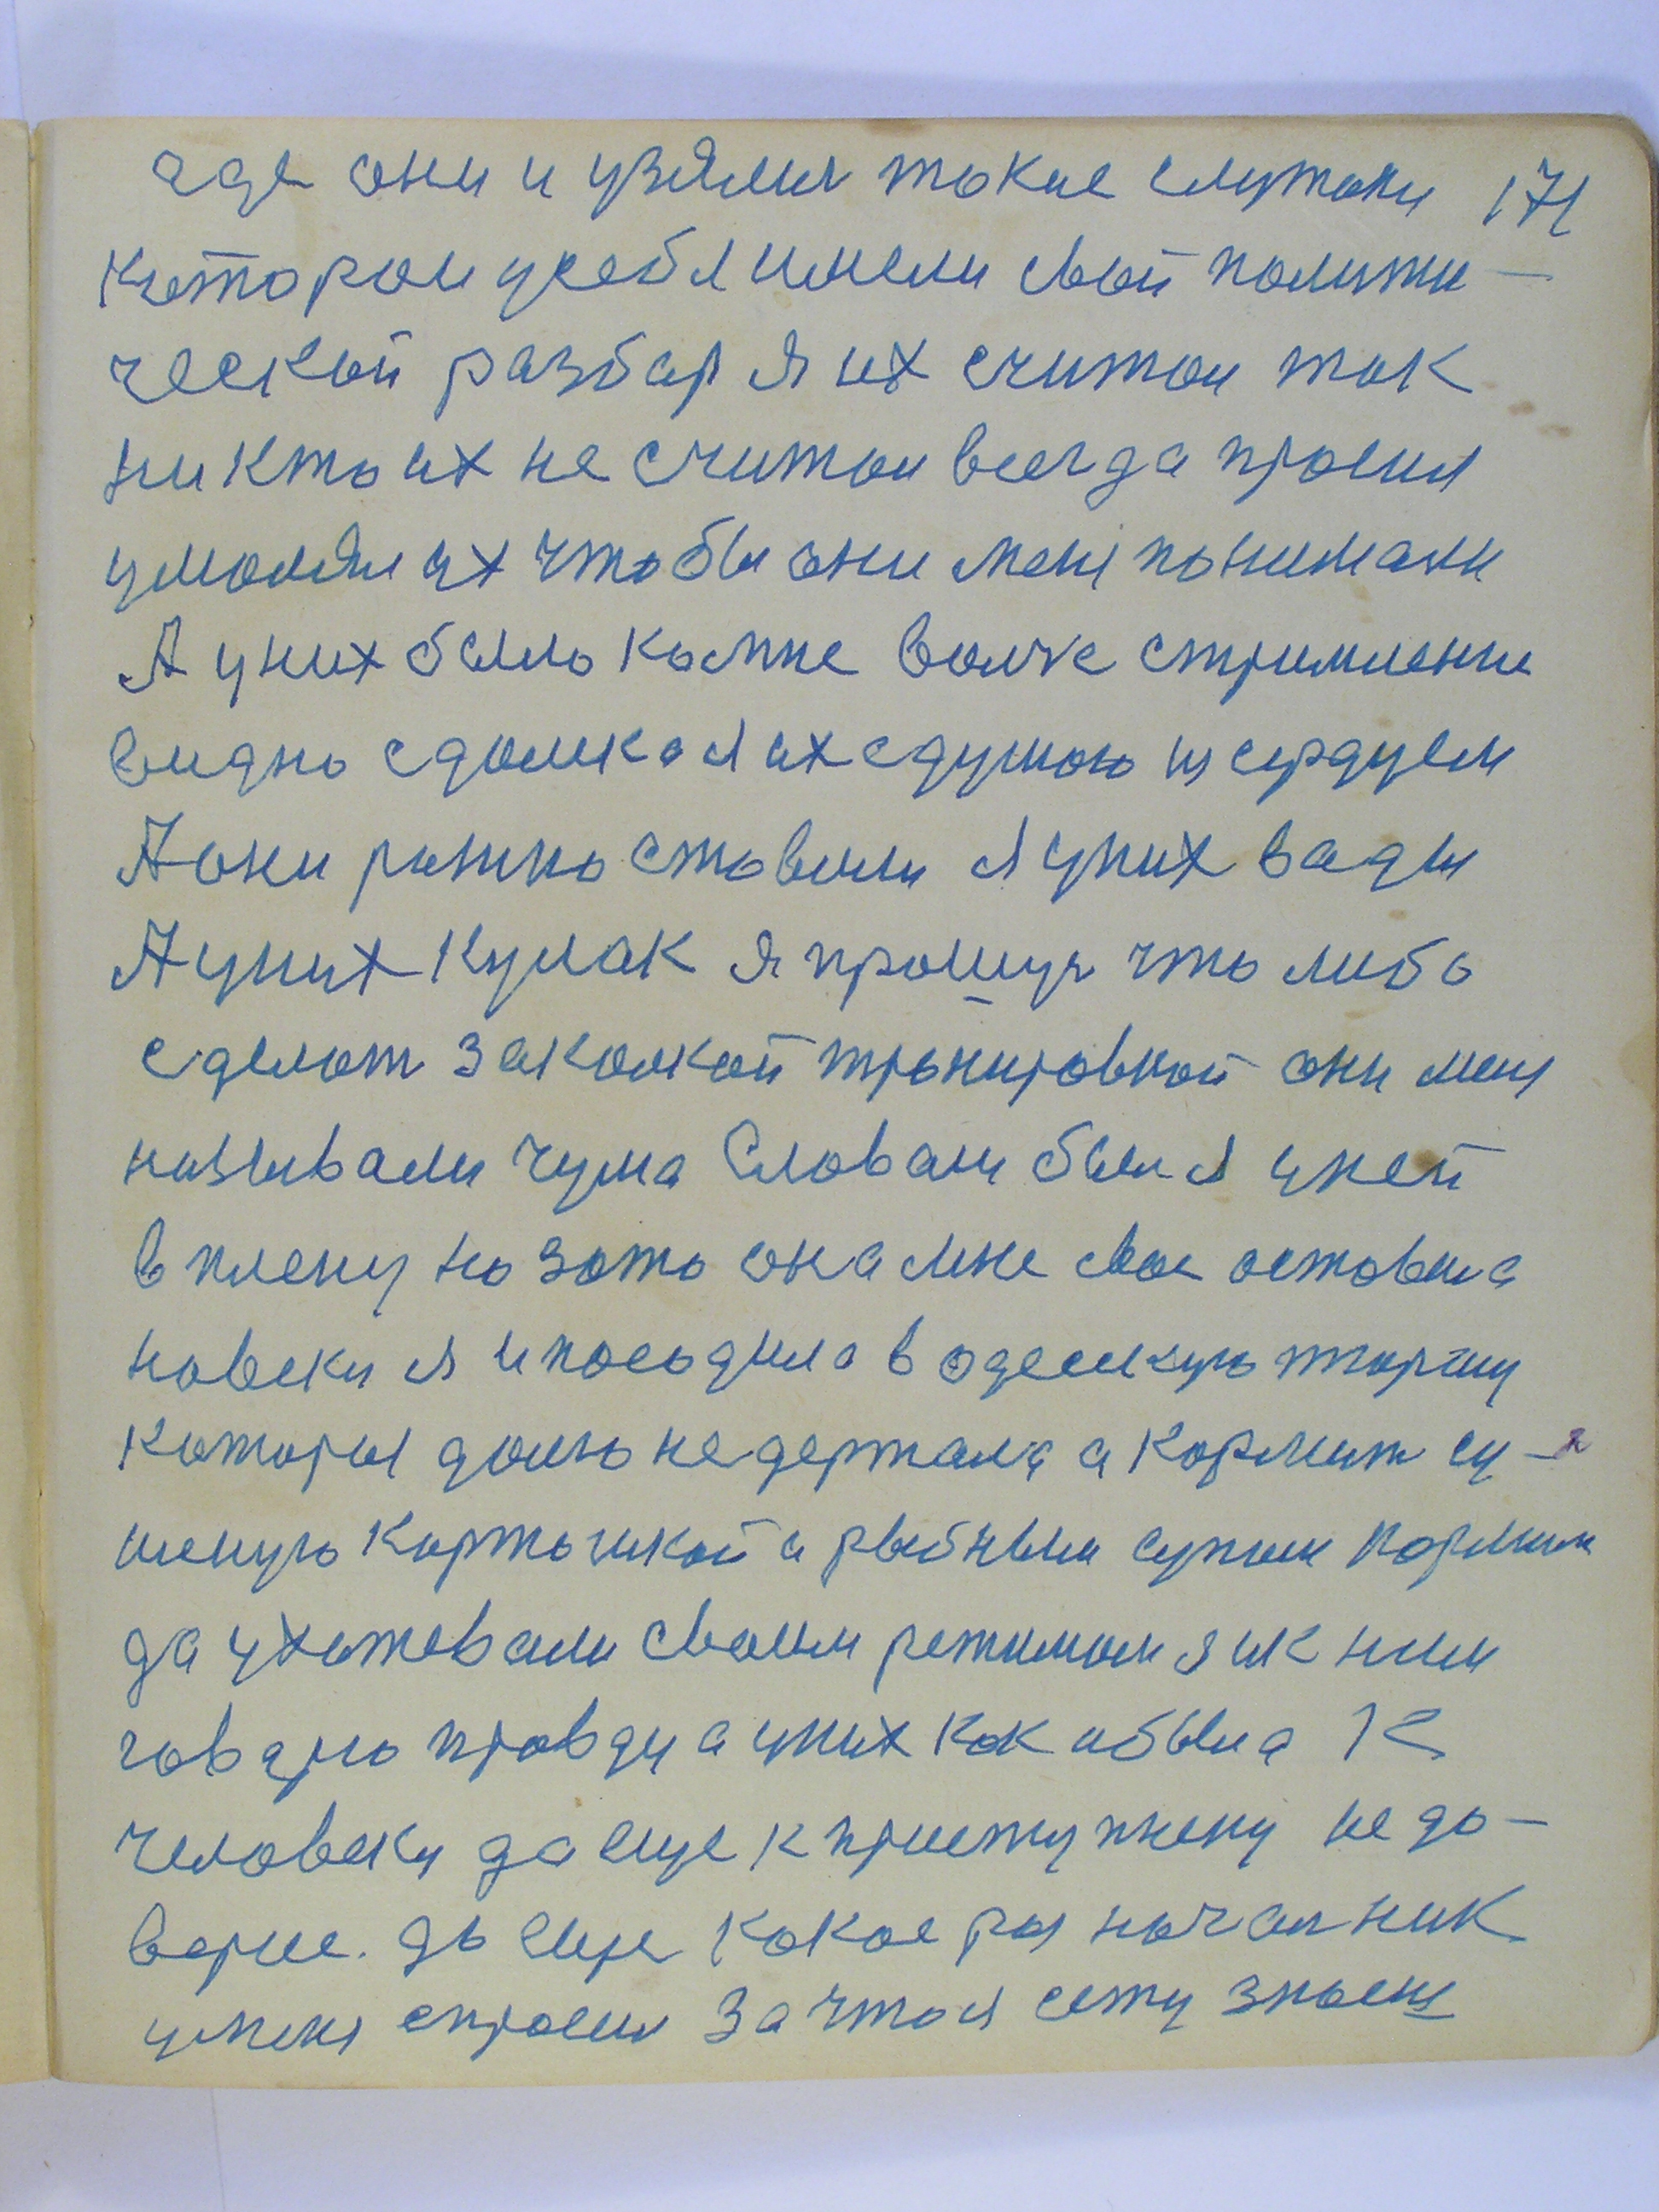 где они и узялись токие служаки 171
которои усебя имели свой полити-
ческой разбор я их считои так
ни кто их не считои всегда просил
умолял их что бы они меня понимали
А у них было волчье стримление
видно я их с душою и сердцем
А они ставили я у них вады
А у них кулак я прошуся что либо
сделат за тронировкой они меня
називали чума Словами был я у ней
в плену но зато она мне свое оставила
навеки я и посодила в одескую тюрму
которыя долго не держала а кормит су-
шеную картошкой а рыбным супом кормили
да ухажевали своим режимом я им
говарю провду а у них как и была К
человеку да еще к приступнену не до-
верие. до еще какое роз начальник
у меня спросил За что я сежу знаеш